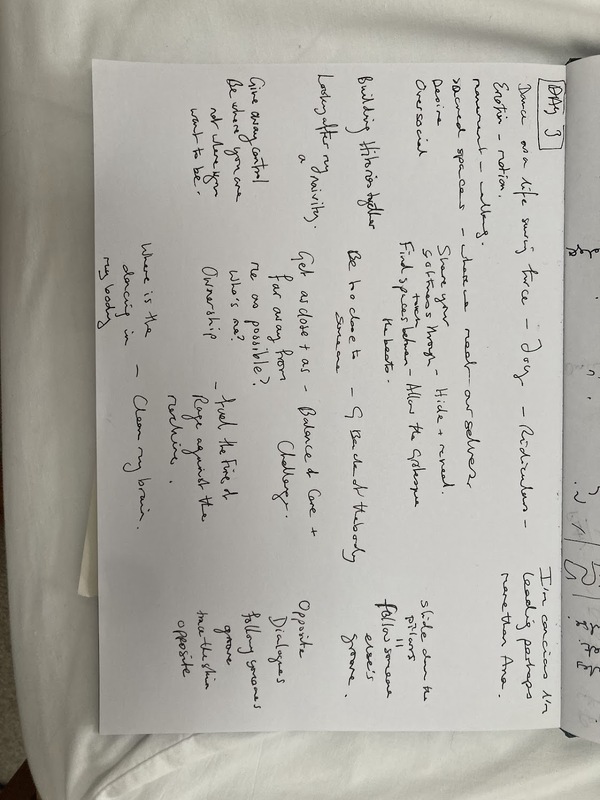 DAY 3
Dance as a life saving force - Joy - Ridiculous -
Emotion - motion.
movement -
sacred spaces - where we meet ourselves.
Desire
Over social
Share your
softness through
touch
- Hide + reveal.
Find spaces between
the beats.
- Allow the Grotesque
Building Histories together
Be too close to
someone
- Back of the body
Looking after my
naivity.
Get as close + as
far away from
me as possible?
Who's me?
Ownership
- Balance of Care +
Challenge.
Give away control
Be where you are
not where you
want to be.
- fuel the fire of
Rage against the
machine.
Where is the
dancing in
my body
- Clean my brain.
I'm concious I'm
leading perhaps
more than Ana.
Slide down the
pillars
=
follow someone
else's
groove.
Opposite
Dialogues
following someones
groove
trace the skin
opposite